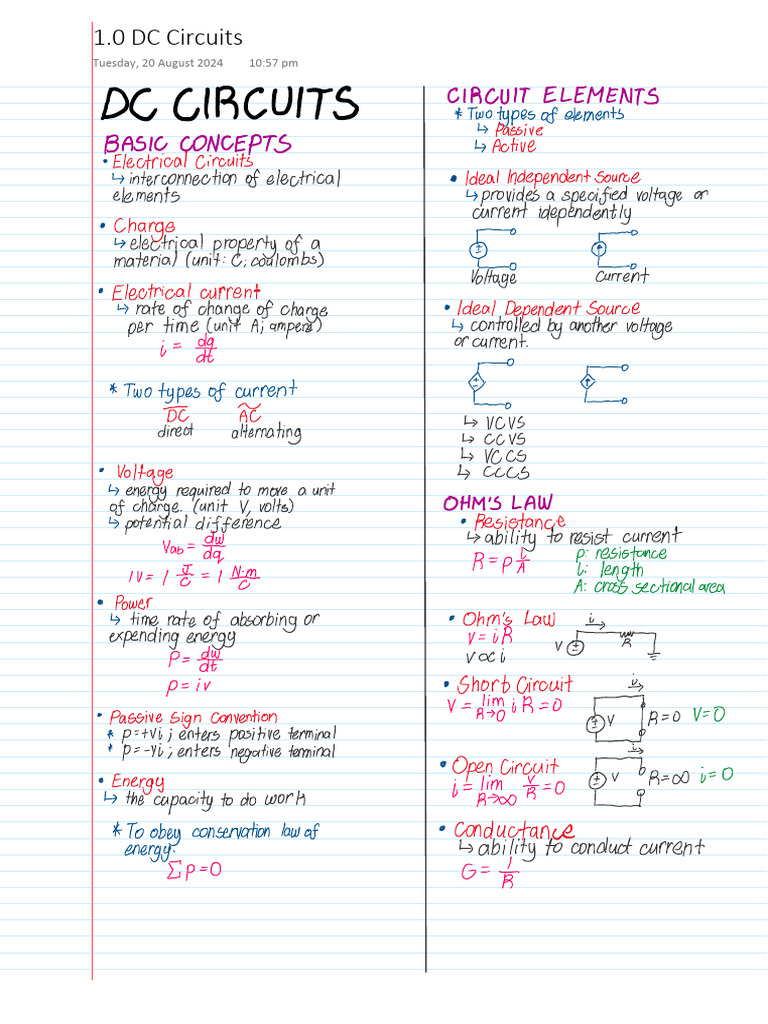 1.0 DC Circuits
Tuesday, 20 August 2024 10:57 pm
DC CIRCUITS
BASIC CONCEPTS
• Electrical Circuits
↳ interconnection of electrical
elements
• Charge
↳ electrical property of a
material (unit: C; coulombs)
• Electrical current
↳ rate of change of charge
per time (unit A; amperes)
i = dq/dt
* Two types of current
DC AC
direct alternating
• Voltage
↳ energy required to move a unit
of charge. (unit V, volts)
↳ potential difference
Vab = dw/dq
1V = 1 J/C = 1 N·m/C
• Power
↳ time rate of absorbing or
expending energy
P = dw/dt
P = iv
• Passive Sign Convention
* P=+Vi; enters positive terminal
* P=-Vi; enters negative terminal
• Energy
↳ the capacity to do work
* To obey conservation law of
energy:
∑P=0
CIRCUIT ELEMENTS
* Two types of elements
↳ Passive
↳ Active
• Ideal Independent Source
↳ provides a specified voltage or
current idependently
+
-
Voltage Current
• Ideal Dependent Source
↳ controlled by another voltage
or current.
+
-
↳ VCVS
↳ CCVS
↳ VCCS
↳ CCCS
OHM'S LAW
• Resistance
↳ ability to resist current
R = ρ L/A
ρ: resistance
L: length
A: cross sectional area
• Ohm's Law
V = iR
V ∝ i
i
V + - R
• Short Circuit
V = lim R→0 iR = 0
i
+ - V R=0 V=0
• Open Circuit
i = lim R→∞ V/R = 0
i
+ - V R=∞ i=0
• Conductance
↳ ability to conduct current
G = 1/R